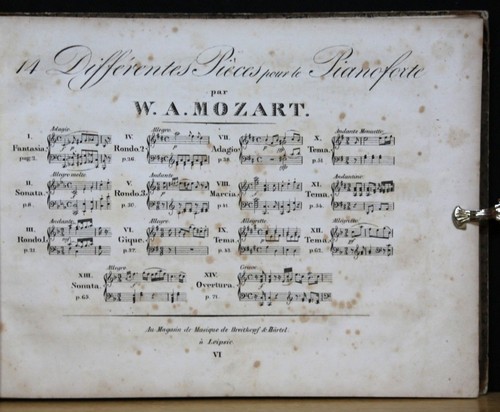 14 Différentes Pièces pour le Pianoforte
par
W. A. MOZART.
Adagio Allegro Andante Menuetto
I. IV. VII. X.
Fantasia. Rondo. 2 Adagio Tema.
pag. 2. p. 26. p. 38. p. 51.
Allegro molto Andante Andantino
II. V. VIII. XI.
Sonata. Rondo. 3. Marcia. Tema.
p. 8. p. 30. p. 41. p. 54.
Andante Allegro Allegretto Allegretto
III. VI. IX. XII.
Rondo. 1. Gique. Tema. Tema.
p. 21. p. 37. p. 45. p. 62.
Allegro Grave
XIII. XIV.
Sonata. Overtura.
p. 63. p. 71.
Au Magasin de Musique de Breitkopf & Härtel.
à Leipsic
VI